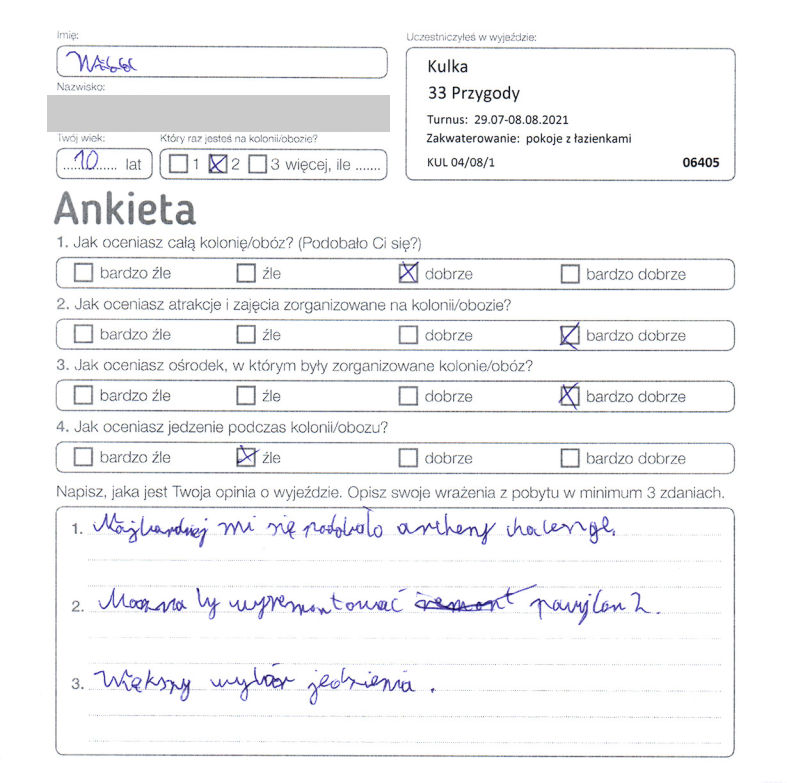 Imię:
Uczestniczyłeś w wyjeździe:
Kulka
33 Przygody
Nazwisko:
Turnus: 29.07-08.08.2021
Twój wiek:
Który raz jesteś na kolonii/obozie?
Zakwaterowanie: pokoje z łazienkami
10 lat
1 2 3 więcej, ile .......
KUL 04/08/1
06405
Ankieta
1. Jak oceniasz całą kolonię/obóz? (Podobało Ci się?)
bardzo źle źle dobrze bardzo dobrze
2. Jak oceniasz atrakcje i zajęcia zorganizowane na kolonii/obozie?
bardzo źle źle dobrze bardzo dobrze
3. Jak oceniasz ośrodek, w którym były zorganizowane kolonie/obóz?
bardzo źle źle dobrze bardzo dobrze
4. Jak oceniasz jedzenie podczas kolonii/obozu?
bardzo źle źle dobrze bardzo dobrze
Napisz, jaka jest Twoja opinia o wyjeździe. Opisz swoje wrażenia z pobytu w minimum 3 zdaniach.
1. Najbardziej mi się podobało chalenge.
2. Można by wyremontować remont pavijlon 2.
3. Większy wybór jedzienia.